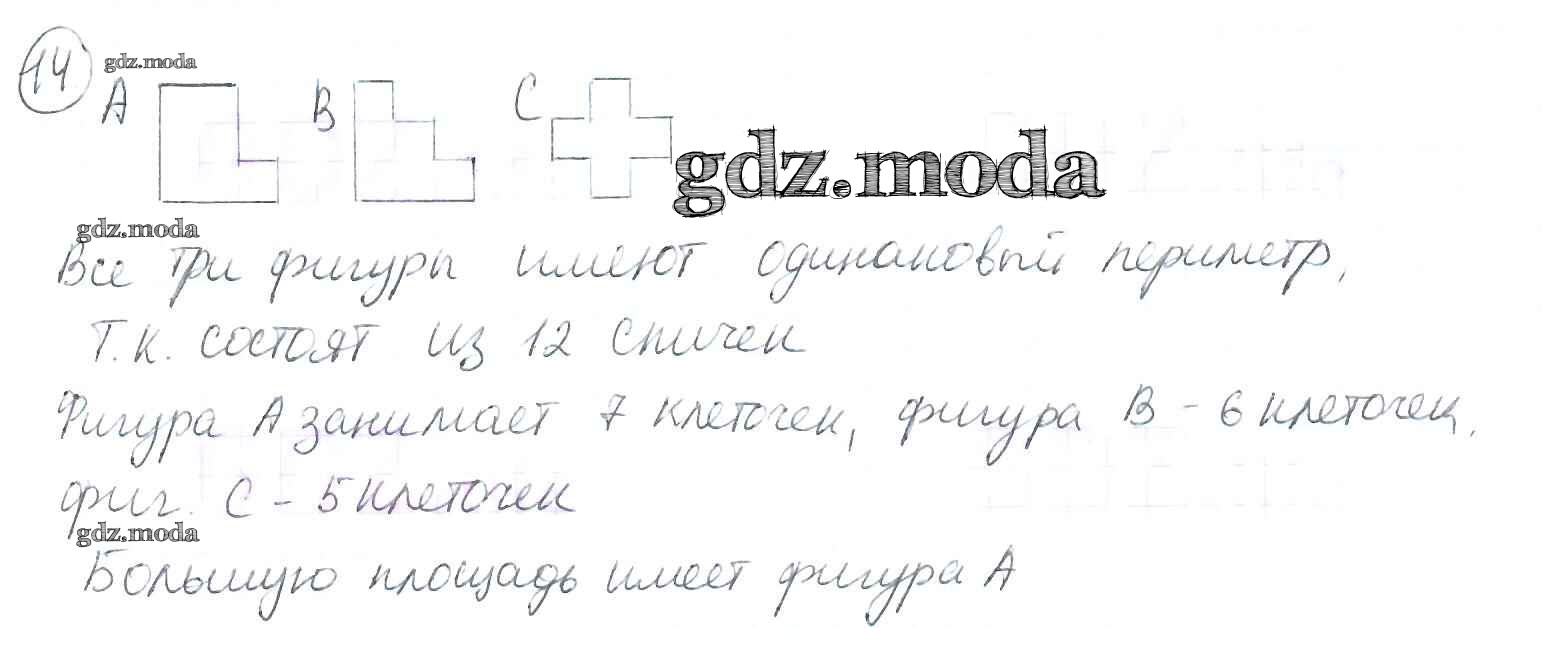 14 gdz.moda
A B C
gdz.moda
gdz.moda
Все три фигуры имеют одинаковый периметр,
т.к. состоят из 12 спичек
Фигура А занимает 7 клеточек, фигура В - 6 клеточек,
фиг. С - 5 клеточек
gdz.moda
Большую площадь имеет фигура А